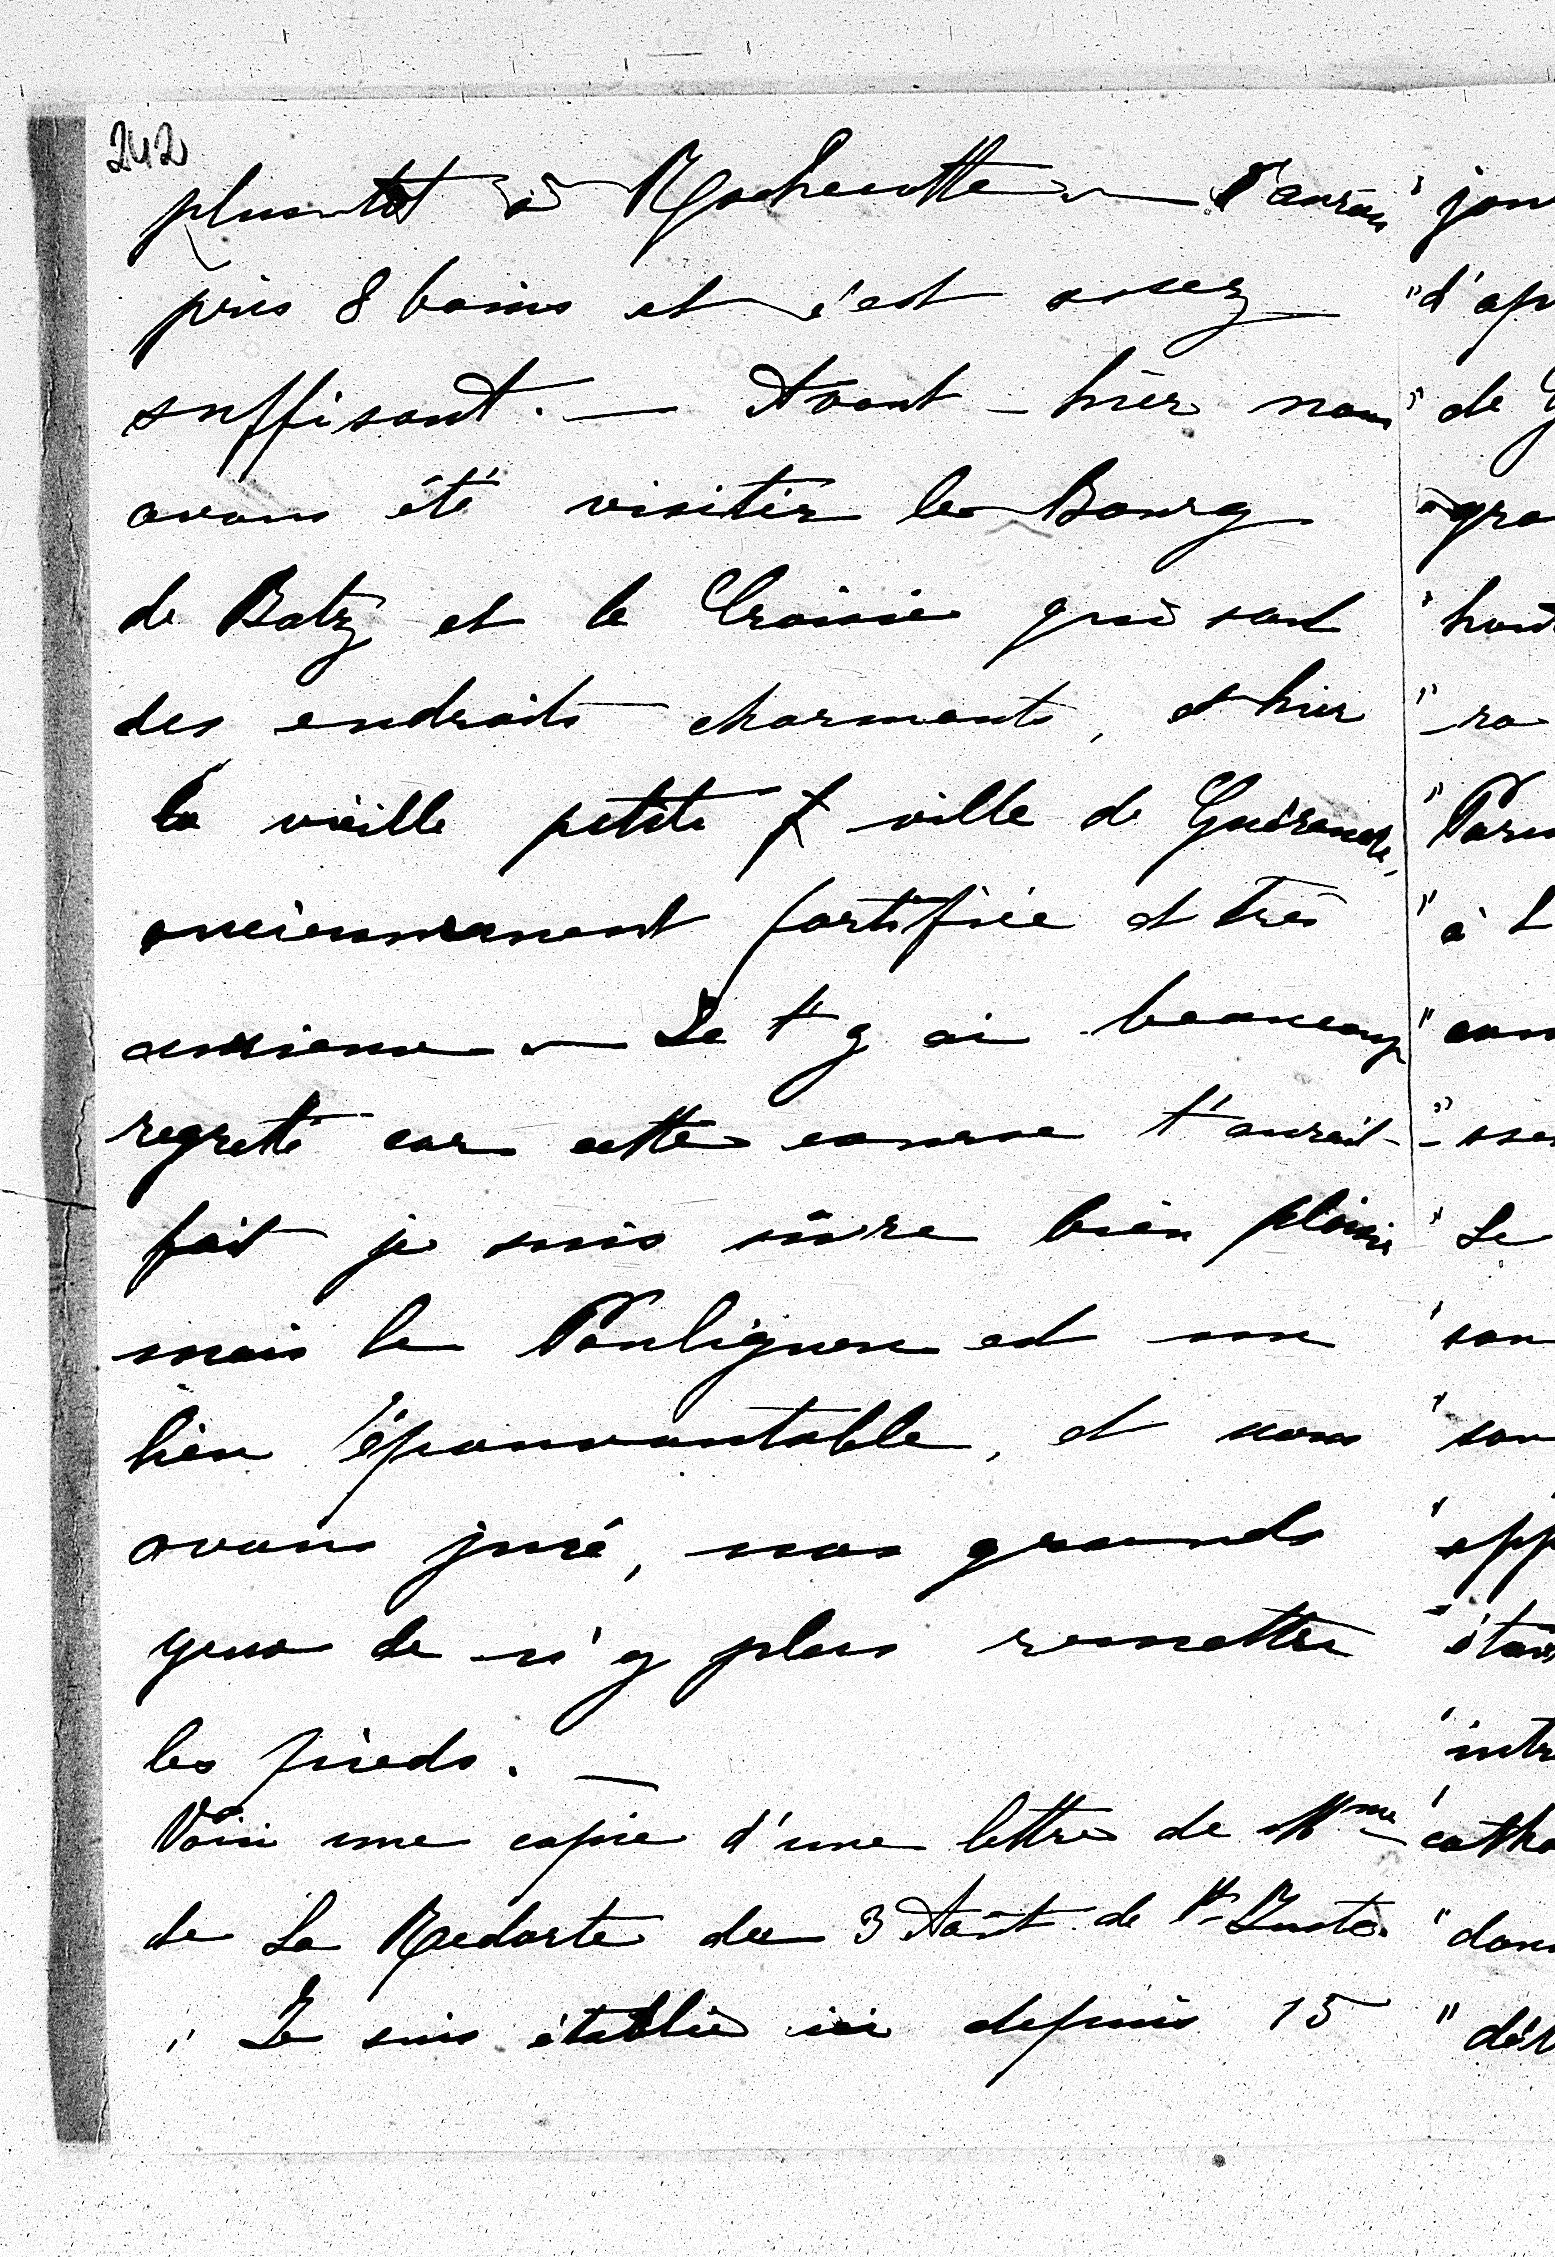 242
plus tot à Rochecotte — J'aurai
pris 8 bains et c'est assez
suffisant. — Avant-hier nous
avons été visiter le Bourg
de Batz et le Croisic qui sont
des endroits charmants, et hier
la vieille petite ville de Guérande,
anciennement fortifiée et très
ancienne — Je t'y ai beaucoup
regretté car cette course t'aurait
fait je suis sûre bien plaisir
mais le Pouliguen est un
lieu épouvantable, et nous
avons juré, nos grands
yeux de n'y plus remettre
les pieds. —
Voici une copie d'une lettre de Mme
de La Redorte du 3 Août de St Juste.
" Je suis établie ici depuis 15
" jour
" d'ap
" de
" gra
" haut
" ra
" Paris
" à L
" com
" sse
" Le
" son
" son
" app
" étai
" intr
" catho
" dans
" dér